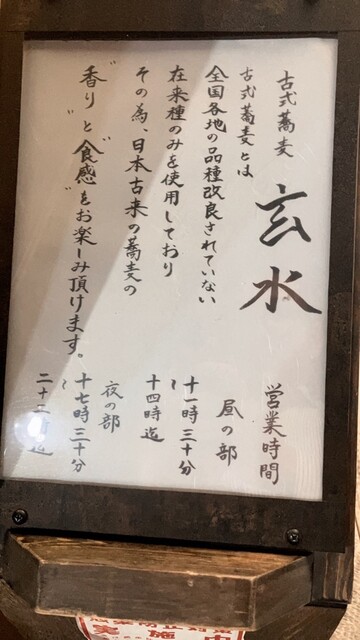 古式蕎麦 玄水
古式蕎麦とは
全国各地の品種改良されていない
在来種のみを使用しており
その為、日本古来の蕎麦の
"香り"と"食感"をお楽しみ頂けます。
営業時間
昼の部
十一時三十分
〜
十四時迄
夜の部
十七時三十分
〜
実施中